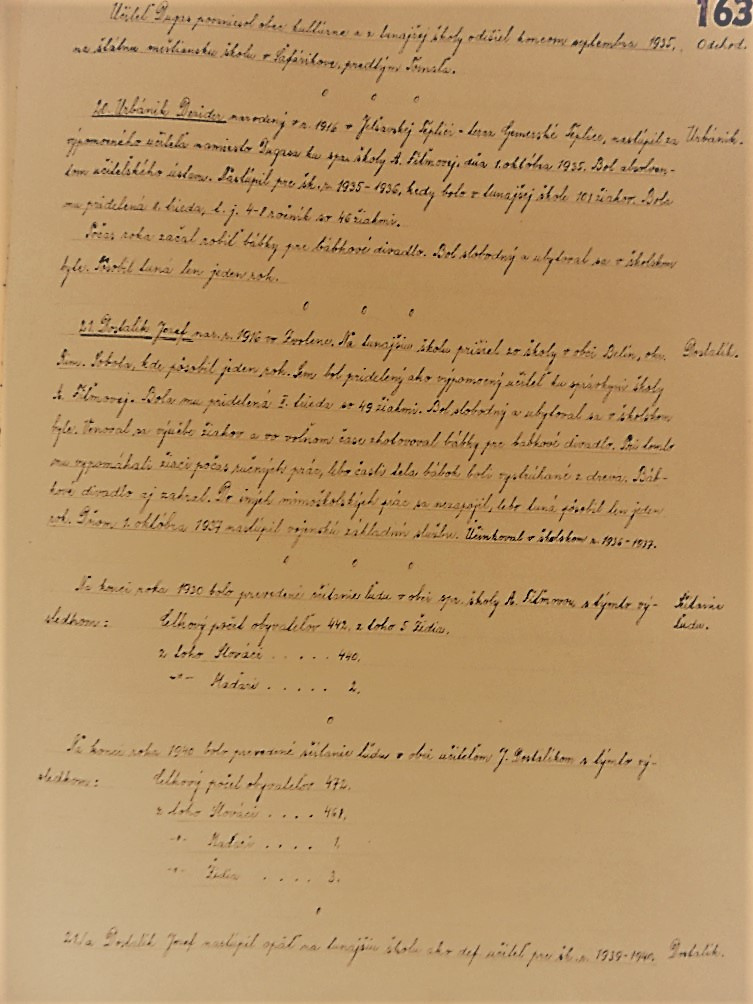 163
Učiteľ Dugas povzniesol obec kultúrne a z tunajšej školy odišiel koncom septembra 1935. Odchod.
na štátnu meštiansku školu v Šafárikove, predtým Tornaľa.
20. Urbánik Dezider narodený v r. 1916 v Jelšavskej Teplici - teraz Gemerské Teplice, nastúpil za Urbánik.
výpomocného učiteľa namiesto Dugasa ku spr. školy A. Fiľmovej, dňa 1. októbra 1935. Bol absolven-
tom učiteľského ústavu. Nastúpil pre šk. r. 1935-1936, kedy bolo v tunajšej škole 101 žiakov. Bola
mu pridelená trieda, t. j. 4-8 ročník so 46 žiakmi.
Počas roka začal robiť bábky pre bábkové divadlo. Bol slobodný a ubytoval sa v školskom
byte. Pôsobil tuná len jeden rok.
21. Dostalík Jozef nar. r. 1916 vo Zvolene. Na tunajšiu školu prišiel zo školy v obci Belín, okr. Dostalík.
Rim. Sobota, kde pôsobil jeden rok. Sem bol pridelený ako výpomocný učiteľ ku správkyni školy
A. Fiľmovej. Bola mu pridelená II. trieda so 49 žiakmi. Bol slobodný a ubytoval sa v školskom
byte. Venoval sa výučbe žiakov a vo voľnom čase zhotovoval bábky pre babkové divadlo. Pri tomto
mu vypomáhali žiaci počas ručných prác, lebo časti tela bábok boli vystrúhané z dreva. Báb-
kové divadlo aj zahral. Do iných mimoškolských prác sa nezapojil, lebo tuná pôsobil len jeden
rok. Dňom 1. októbra 1937 nastúpil vojenskú základnú službu. Účinkoval v školskom r. 1936-1937.
Na konci roka 1930 bolo prevedené sčítanie ľudu v obci spr. školy A. Fiľmovou s týmto vý- Sčítanie
sledkom: Celkový počet obyvateľov 442, z toho 5 Židia. ľudu.
z toho Slováci . . . . . 440.
-"- Maďari . . . . . 2.
Na konci roka 1940 bolo prevedené sčítanie ľudu v obci učiteľom J. Dostalíkom s týmto vý-
sledkom: Celkový počet obyvateľov 472.
z toho Slováci . . . . 468.
-"- Maďari . . . . 1.
-"- Židia . . . . 3.
21/a Dostalík Jozef nastúpil opäť na tunajšiu školu ako def. učiteľ pre šk. r. 1939-1940. Dostalík.